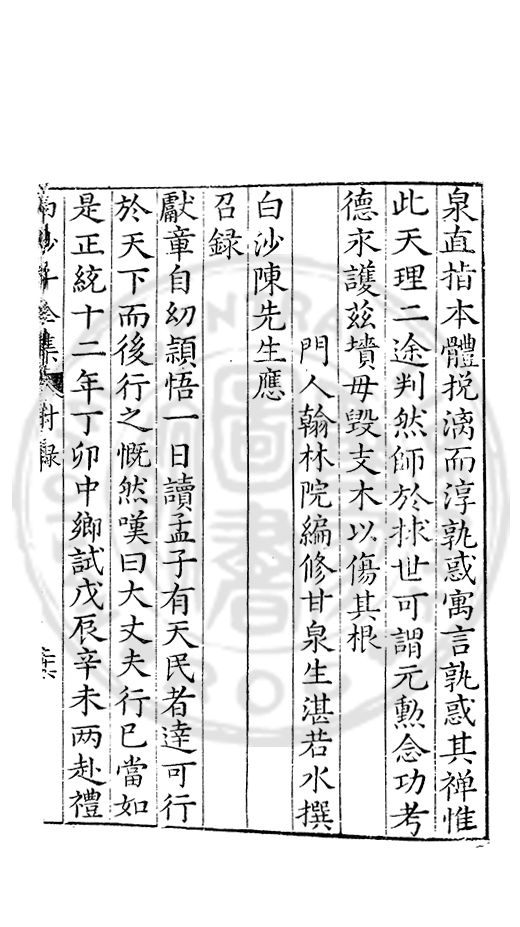 泉直指本體挩漓而淳孰惑寓言孰惑其禅惟
此天理二途判然師於捄世可謂元勲念功考
德永護兹墳毋毀支木以傷其根
門人翰林院編修甘泉生湛若水撰
白沙陳先生應
召録
獻章自幼頴悟一日讀孟子有天民者達可行
於天下而後行之慨然嘆曰大丈夫行己當如
是正統十二年丁卯中鄉試戊辰辛未两赴禮
白沙子全集
附録